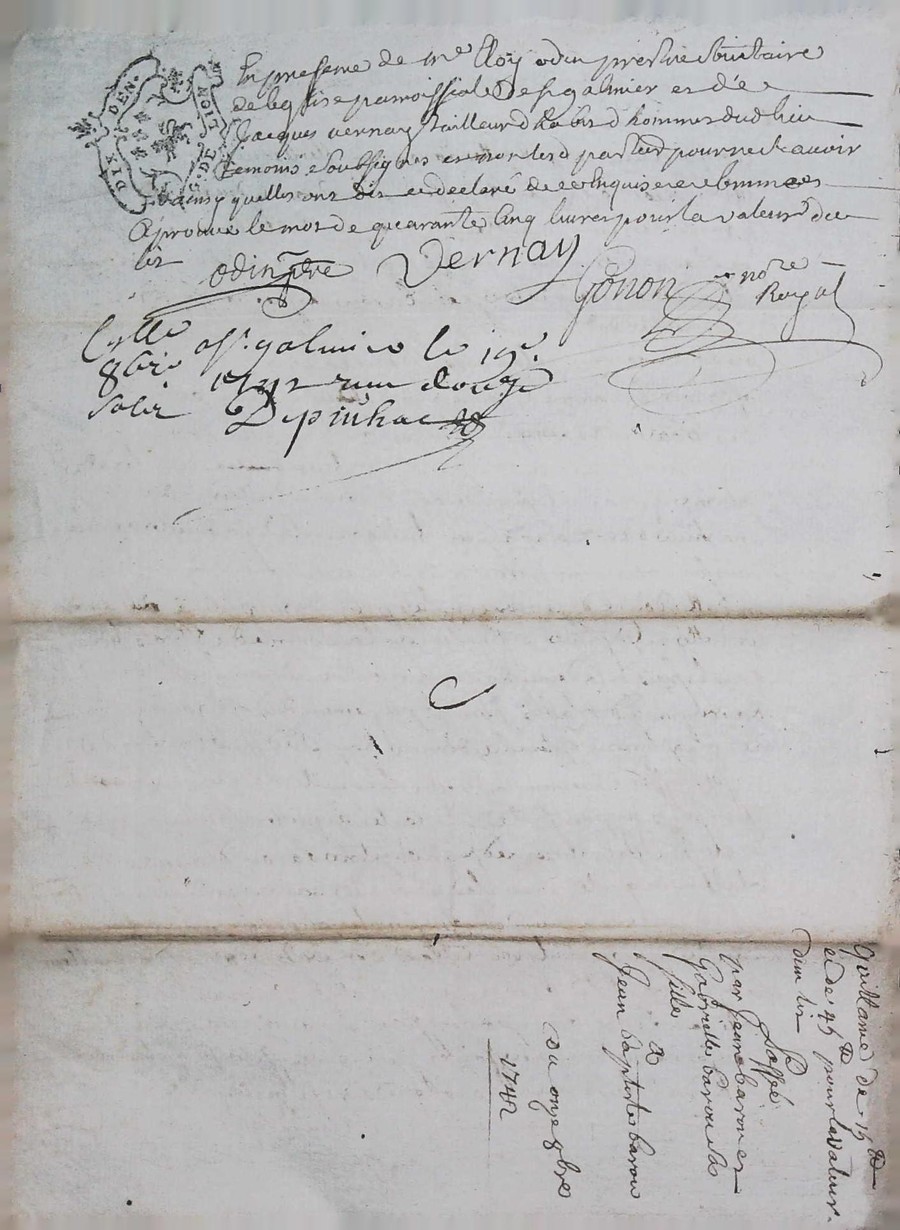 DIX DEN.
G. DE LION
En presence de mre Eloy odin prestre sociétaire
de leglise parroissialle de st galmier et de
Jacques vernay tailleur d habits d hommes dud lieu
temoins soubsignes et non lesd parties pour ne scavoir
ainsy quelles ont dit et declaré de ce enquises et sommees
Aprouvé le mot de quarante cinq livres pour la valeur du
lit
odin pbre
Vernay
Gonon nore
Royal
Csllé a st. galmier le 19e.
8bre 1742 reçu douze
solz
Depinhac
Quittance de 15 lt
et de 45 lt pour la valeur
dun lit
passé
par Jeane barou et
Gabrielle barou sa
fille
a
Jean baptiste barou
du onze 8bre
1742